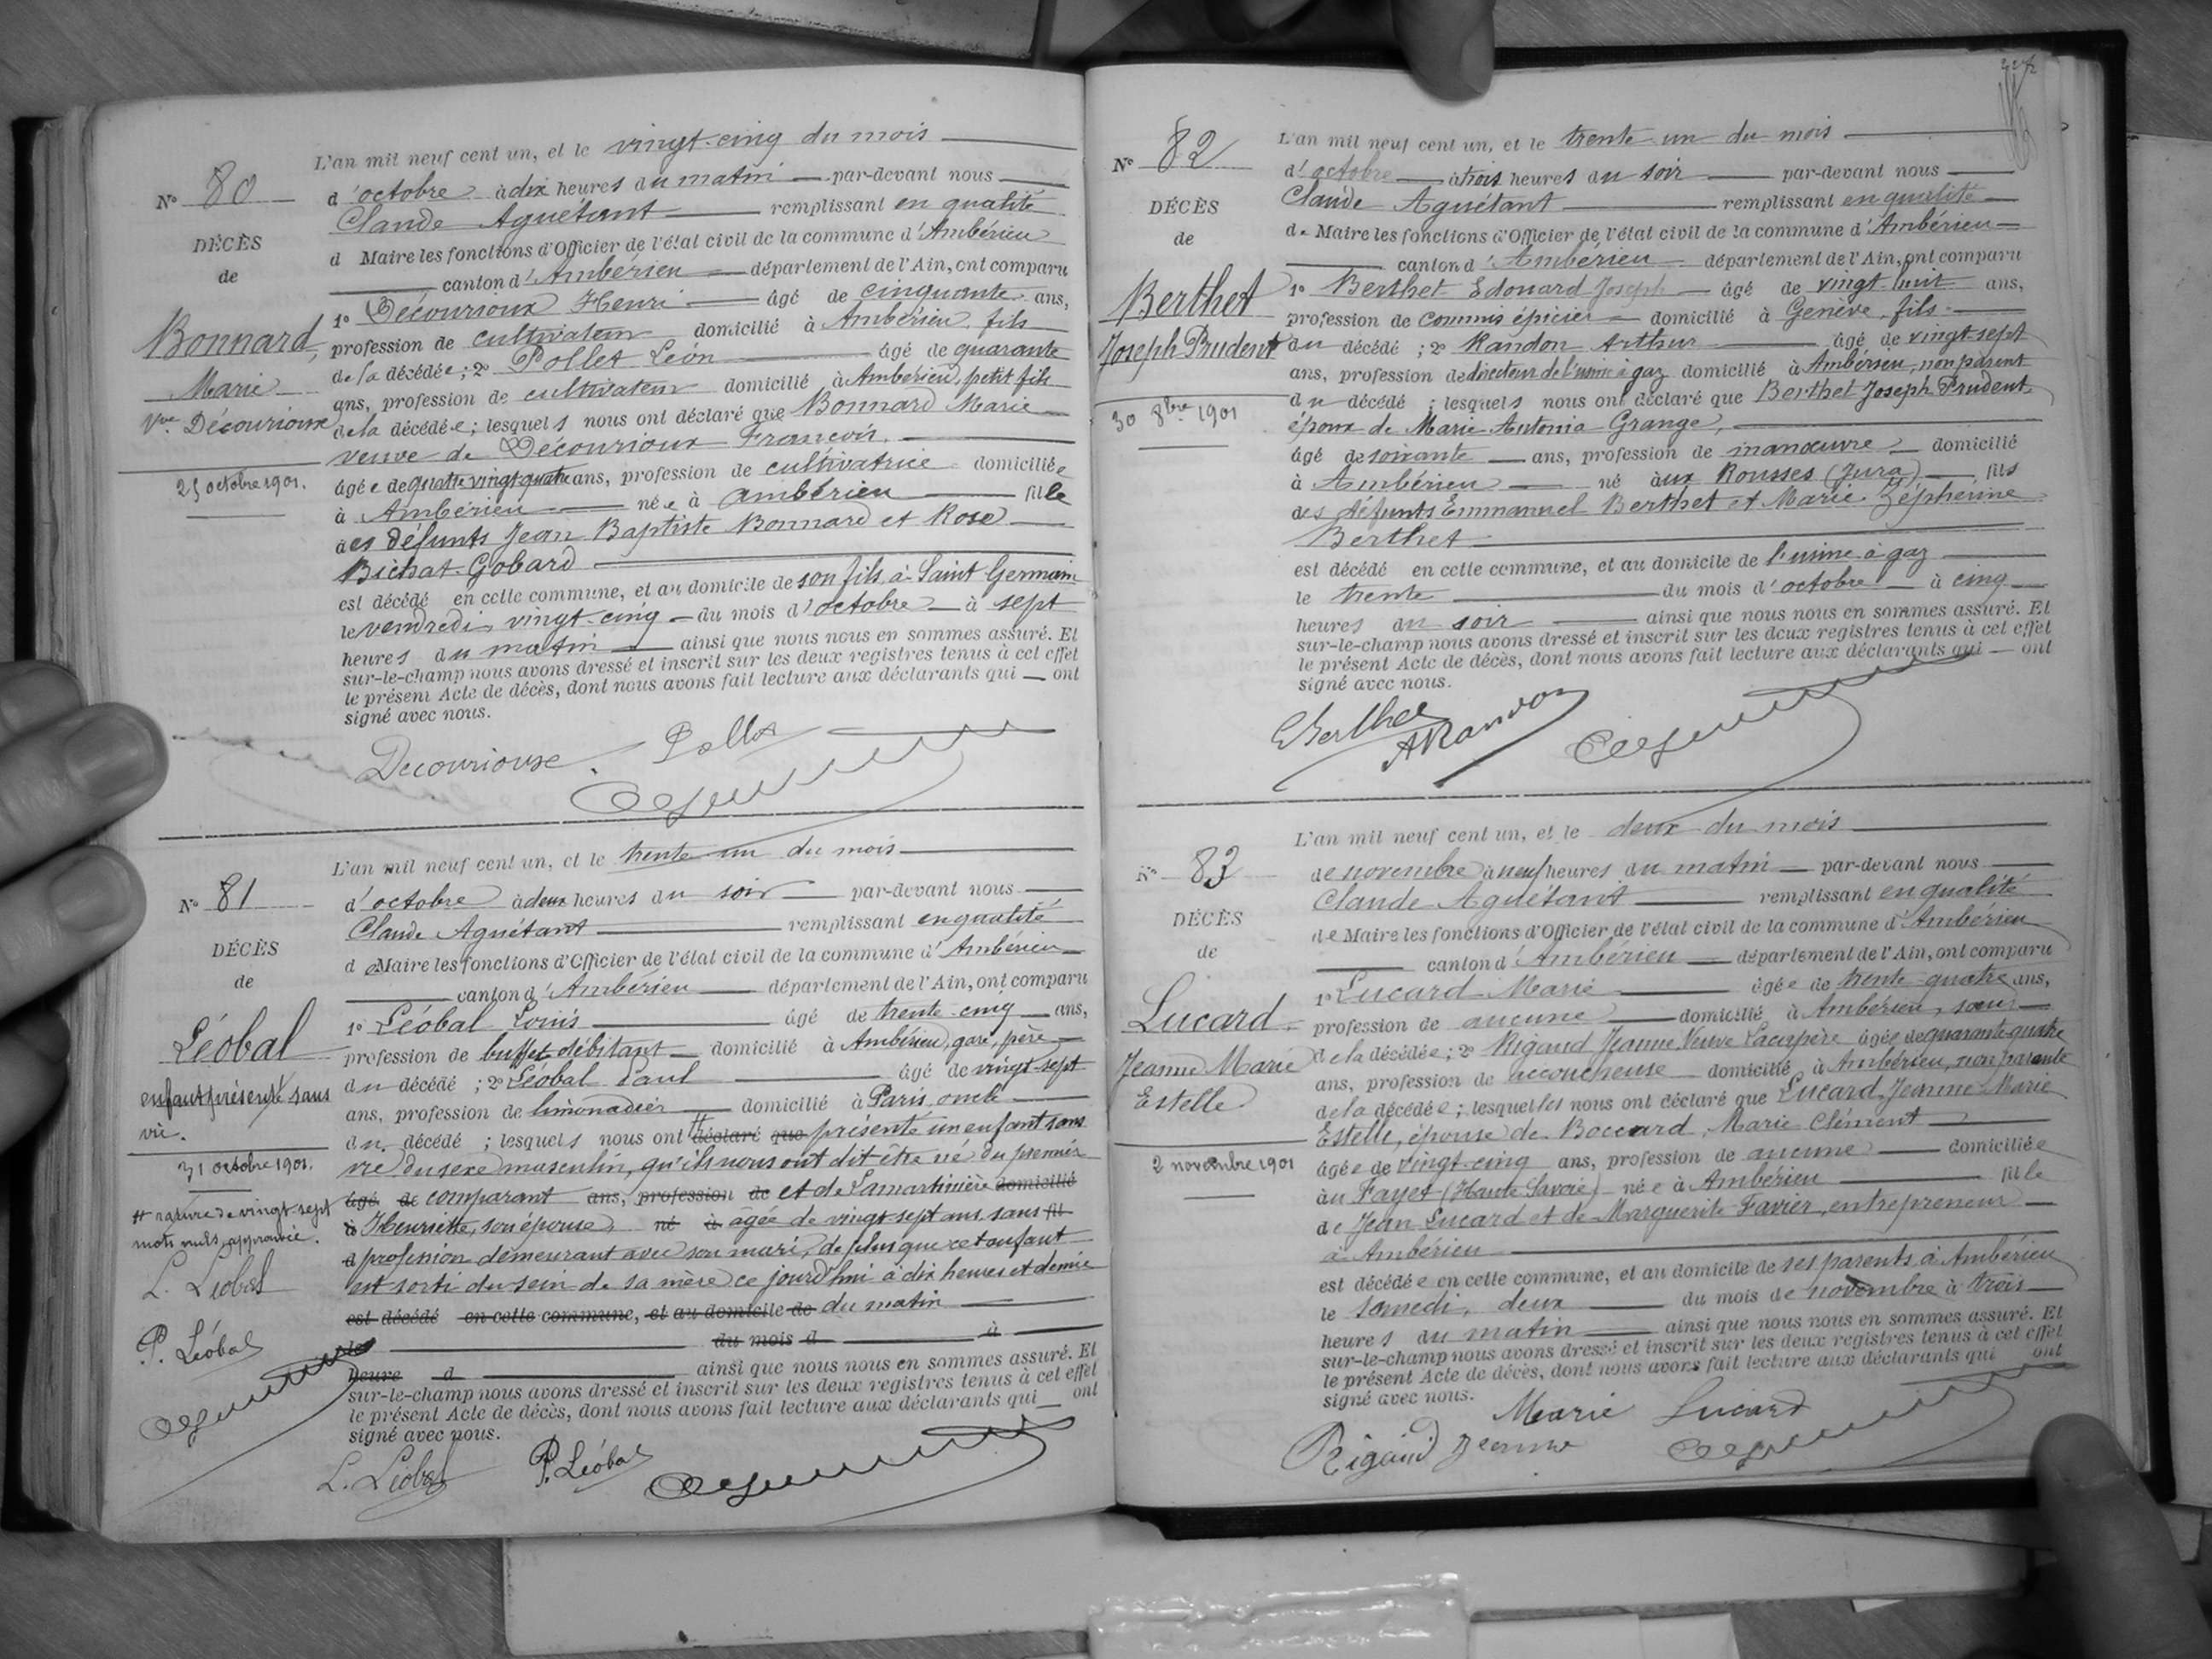 N° 80
DÉCÈS
de
Bonnard,
Marie
Vve Décourioux
25 octobre 1901.
L'an mil neuf cent un, et le vingt-cinq du mois
d'octobre à dix heures du matin par-devant nous
Claude Aguétant remplissant en qualité
d Maire les fonctions d'Officier de l'état civil de la commune d'Ambérieu
canton d'Ambérieu département de l'Ain, ont comparu
1° Décourioux Henri âgé de cinquante ans,
profession de cultivateur domicilié à Ambérieu, fils
de la décédée; 2° Pollet Léon âgé de quarante
ans, profession de cultivateur domicilié à Ambérieu, petit fils
de la décédée; lesquels nous ont déclaré que Bonnard Marie
veuve de Décourioux François,
âgée de quatre vingt quatre ans, profession de cultivatrice domiciliée
à Ambérieu née à Ambérieu fille
des défunts Jean Baptiste Bonnard et Rose
Bichat-Gobard
est décédé en cette commune, et au domicile de son fils, à Saint Germain
le vendredi, vingt-cinq du mois d'octobre à sept
heures du matin ainsi que nous nous en sommes assuré. Et
sur-le-champ nous avons dressé et inscrit sur les deux registres tenus à cet effet
le présent Acte de décès, dont nous avons fait lecture aux déclarants qui ont
signé avec nous.
Decourioux Pollet
N° 81
DÉCÈS
de
Léobal
enfant présenté sans
vie.
31 octobre 1901.
# rature de vingt-sept
mots nuls, approuvée.
L. Léobal
P. Léobal
L'an mil neuf cent un, et le trente un du mois
d'octobre à deux heures du soir par-devant nous
Claude Aguétant remplissant en qualité
de Maire les fonctions d'Officier de l'état civil de la commune d'Ambérieu
canton d'Ambérieu département de l'Ain, ont comparu
1° Léobal Louis âgé de trente-cinq ans,
profession de buffet débitant domicilié à Ambérieu, gare, père
du décédé; 2° Léobal Paul âgé de vingt-sept
ans, profession de limonadier domicilié à Paris, oncle
du décédé; lesquels nous ont # déclaré que présenté un enfant sans
vie du sexe masculin, qu'ils nous ont dit être né du premier
âgé de comparant ans, profession de et de Lamartinière domicilié
à Henriette, son épouse, né à âgée de vingt-sept ans, sans fil
d profession demeurant avec son mari, de plus que cet enfant
est sorti du sein de sa mère ce jourd'hui à dix heures et demie
est décédé en cette commune, et au domicile de du matin
le du mois d à
heure d ainsi que nous nous en sommes assuré. Et
sur-le-champ nous avons dressé et inscrit sur les deux registres tenus à cet effet
le présent Acte de décès, dont nous avons fait lecture aux déclarants qui ont
signé avec nous.
L. Léobal P. Léobal
N° 82
DÉCÈS
de
Berthet
Joseph Prudent
30 8bre 1901
L'an mil neuf cent un, et le trente un du mois
d'octobre à trois heures du soir par-devant nous
Claude Aguétant remplissant en qualité
de Maire les fonctions d'Officier de l'état civil de la commune d'Ambérieu
canton d'Ambérieu département de l'Ain, ont comparu
1° Berthet Edouard Joseph âgé de vingt-huit ans,
profession de commis épicier domicilié à Genève, fils
du décédé; 2° Randon Arthur âgé de vingt-sept
ans, profession de directeur de l'usine à gaz domicilié à Ambérieu, non parent
du décédé; lesquels nous ont déclaré que Berthet Joseph Prudent,
époux de Marie Antonia Grange,
âgé de soixante ans, profession de manœuvre domicilié
à Ambérieu né aux Rousses (Jura) fils
des défunts Emmanuel Berthet et Marie Zéphérine
Berthet
est décédé en cette commune, et au domicile de l'usine à gaz
le trente du mois d'octobre à cinq
heures du soir ainsi que nous nous en sommes assuré. Et
sur-le-champ nous avons dressé et inscrit sur les deux registres tenus à cet effet
le présent Acte de décès, dont nous avons fait lecture aux déclarants qui ont
signé avec nous.
EBerthet ARandon
N° 83
DÉCÈS
de
Lucard
Jeanne Marie
Estelle
2 novembre 1901
L'an mil neuf cent un, et le deux du mois
de novembre à neuf heures du matin par-devant nous
Claude Aguétant remplissant en qualité
de Maire les fonctions d'Officier de l'état civil de la commune d'Ambérieu
canton d'Ambérieu département de l'Ain, ont comparu
1° Lucard Marie âgée de trente-quatre ans,
profession de aucune domicilié à Ambérieu, sœur
de la décédée; 2° Rigaud Jeanne, Veuve Lacupère âgée de quarante-quatre
ans, profession de accoucheuse domicilié à Ambérieu, non parente
de la décédée; lesquelles nous ont déclaré que Lucard Jeanne Marie
Estelle, épouse de Boccard, Marie Clément
âgée de vingt-cinq ans, profession de aucune domiciliée
au Fayet (Haute Savoie) née à Ambérieu fille
de Jean Lucard et de Marguerite Favier, entrepreneur
à Ambérieu
est décédée en cette commune, et au domicile de ses parents à Ambérieu
le samedi, deux du mois de novembre à trois
heures du matin ainsi que nous nous en sommes assuré. Et
sur-le-champ nous avons dressé et inscrit sur les deux registres tenus à cet effet
le présent Acte de décès, dont nous avons fait lecture aux déclarants qui ont
signé avec nous.
Marie Lucard
Rigaud Jeanne